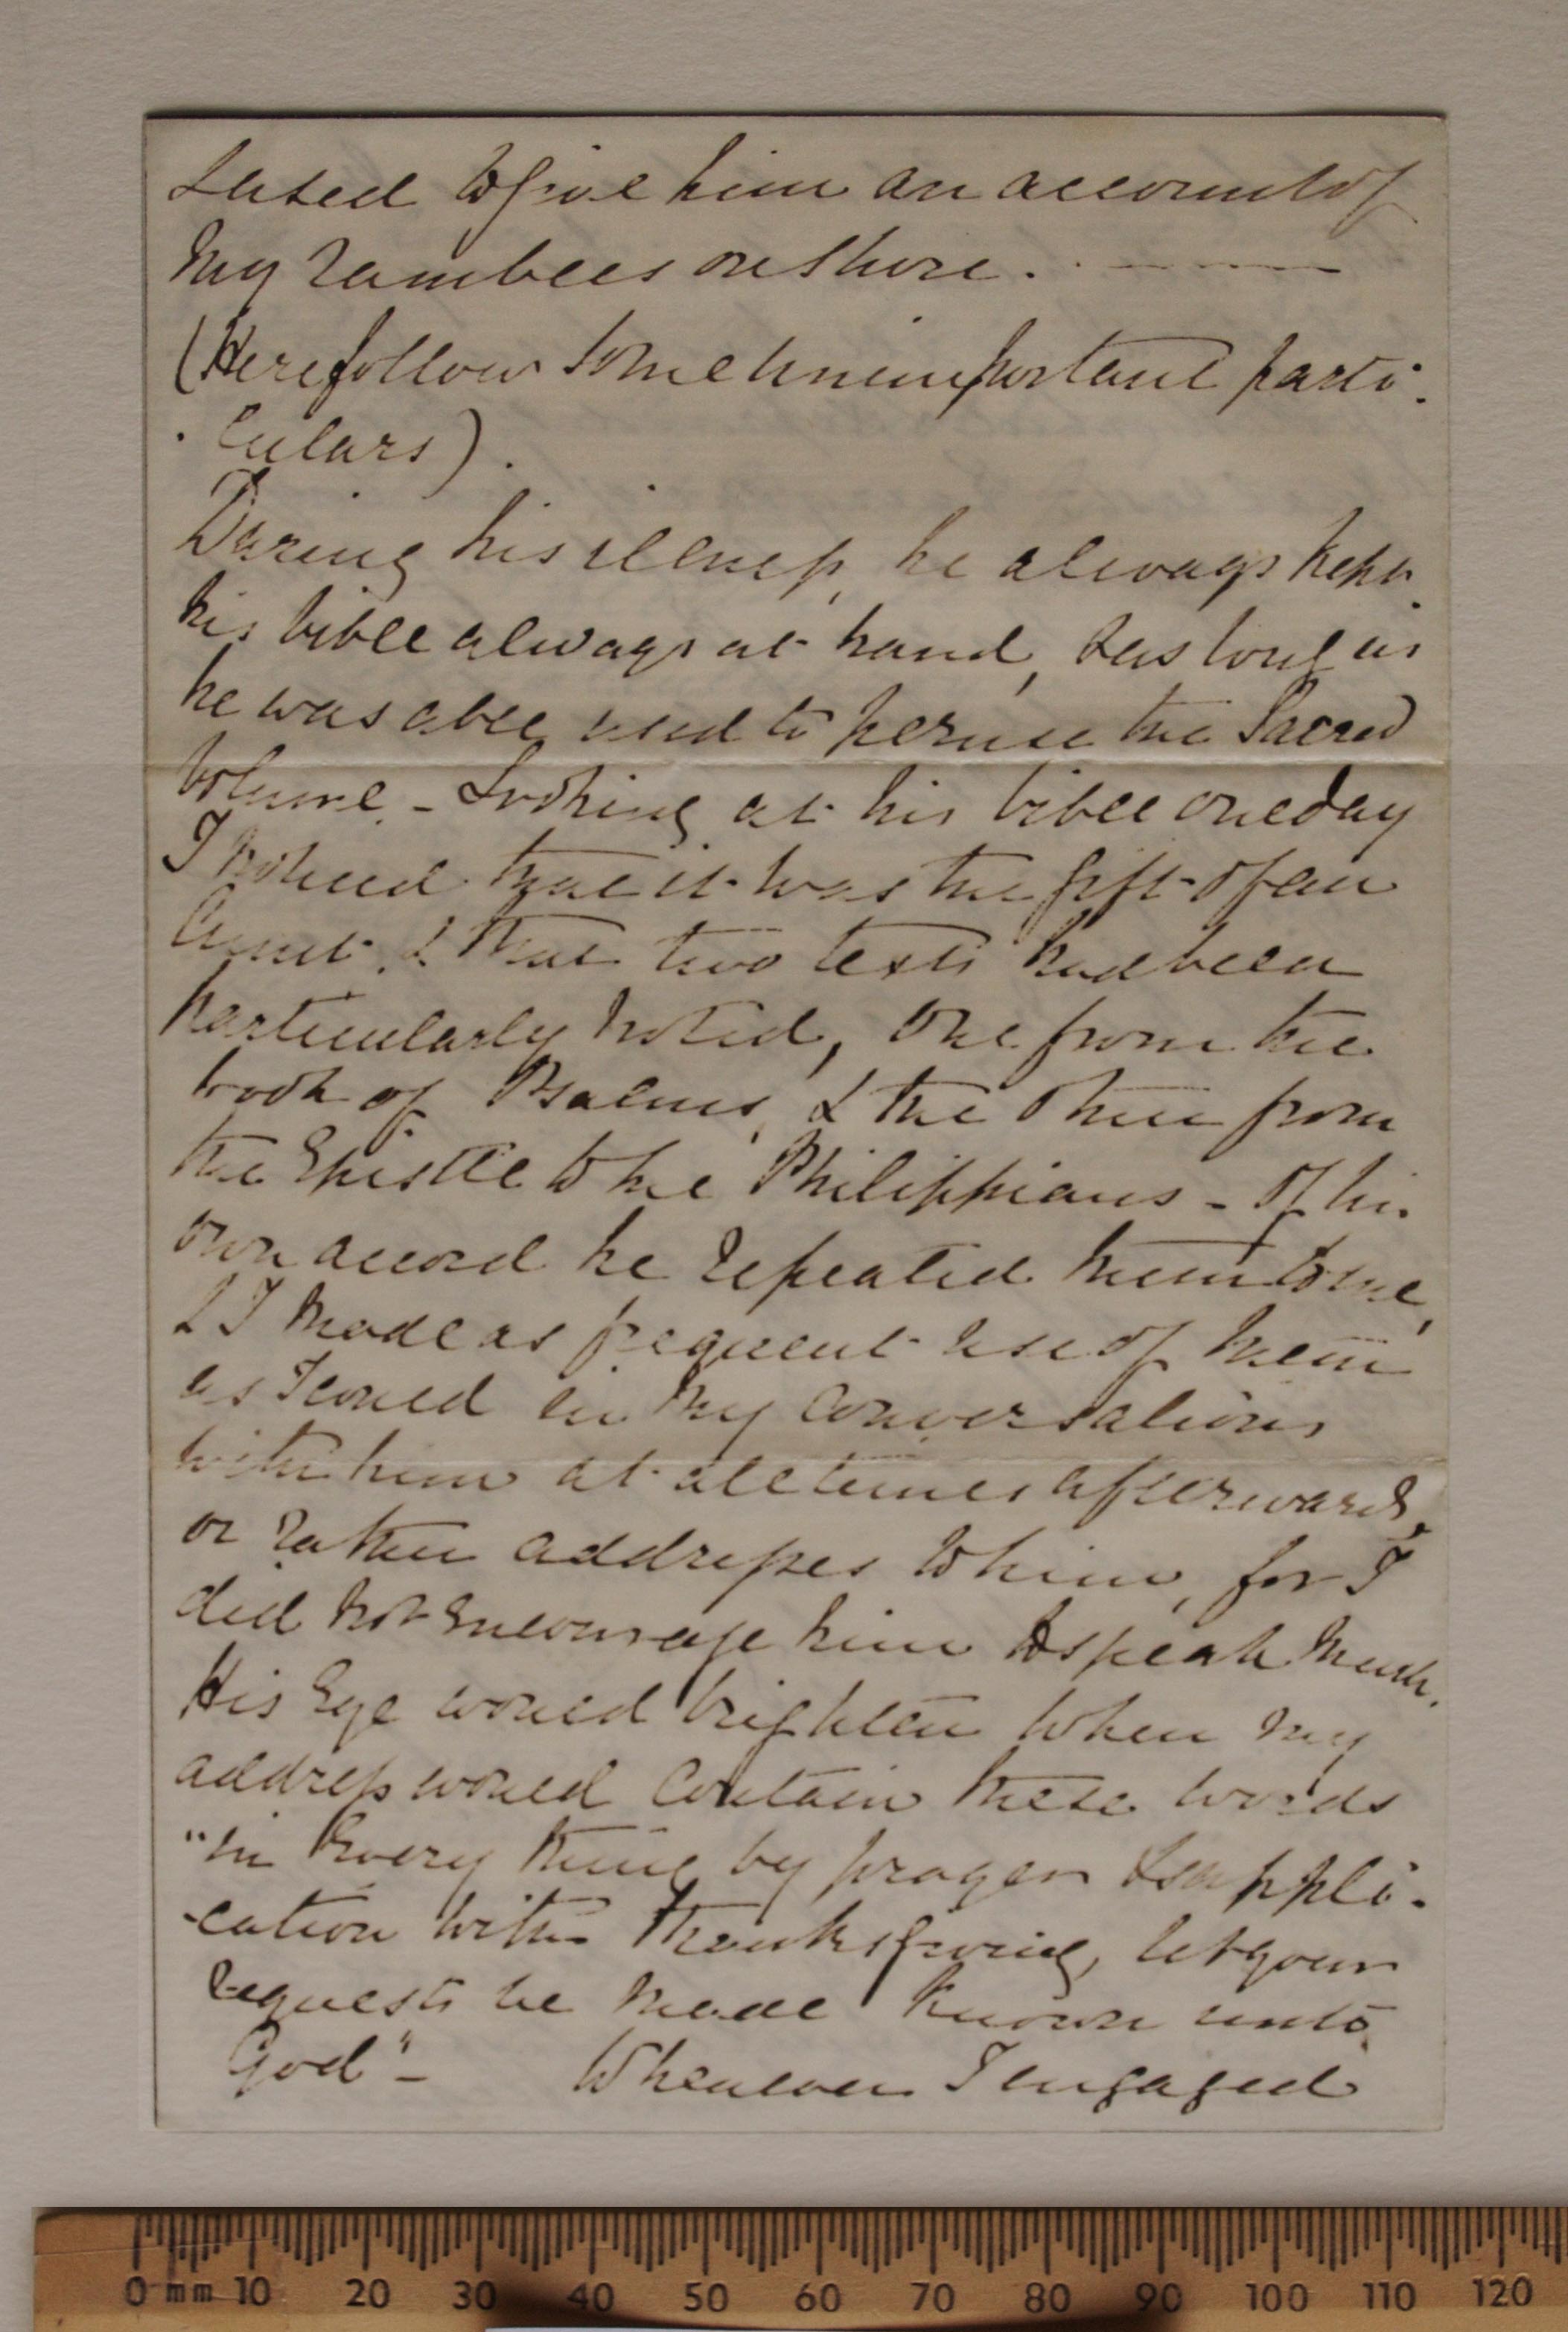 I used to give him an account of
my rambles on shore. - - - -
(Here follow some unimportant parti-
-culars).
During his illness, he always kept
his bible always at hand, & as long as
he was able, used to peruse the Sacred
Volume. - Looking at his bible one day
I noticed that it was the gift of an
Aunt, & that two texts had been
particularly noted, one from the
book of Psalms, & the other from
the Epistle to the Philippians - Of his
own accord he repeated them to me,
& I made as frequent use of them
as I could in my conversations
with him at all times afterwards,
or rather addresses to him, for I
did not encourage him to speak much.
His Eye would brighten when my
address would contain these words
"in Every thing by prayer & suppli-
-cation with thanksgiving, let your
requests be made known unto
God" - Whenever I engaged
0 mm 10 20 30 40 50 60 70 80 90 100 110 120